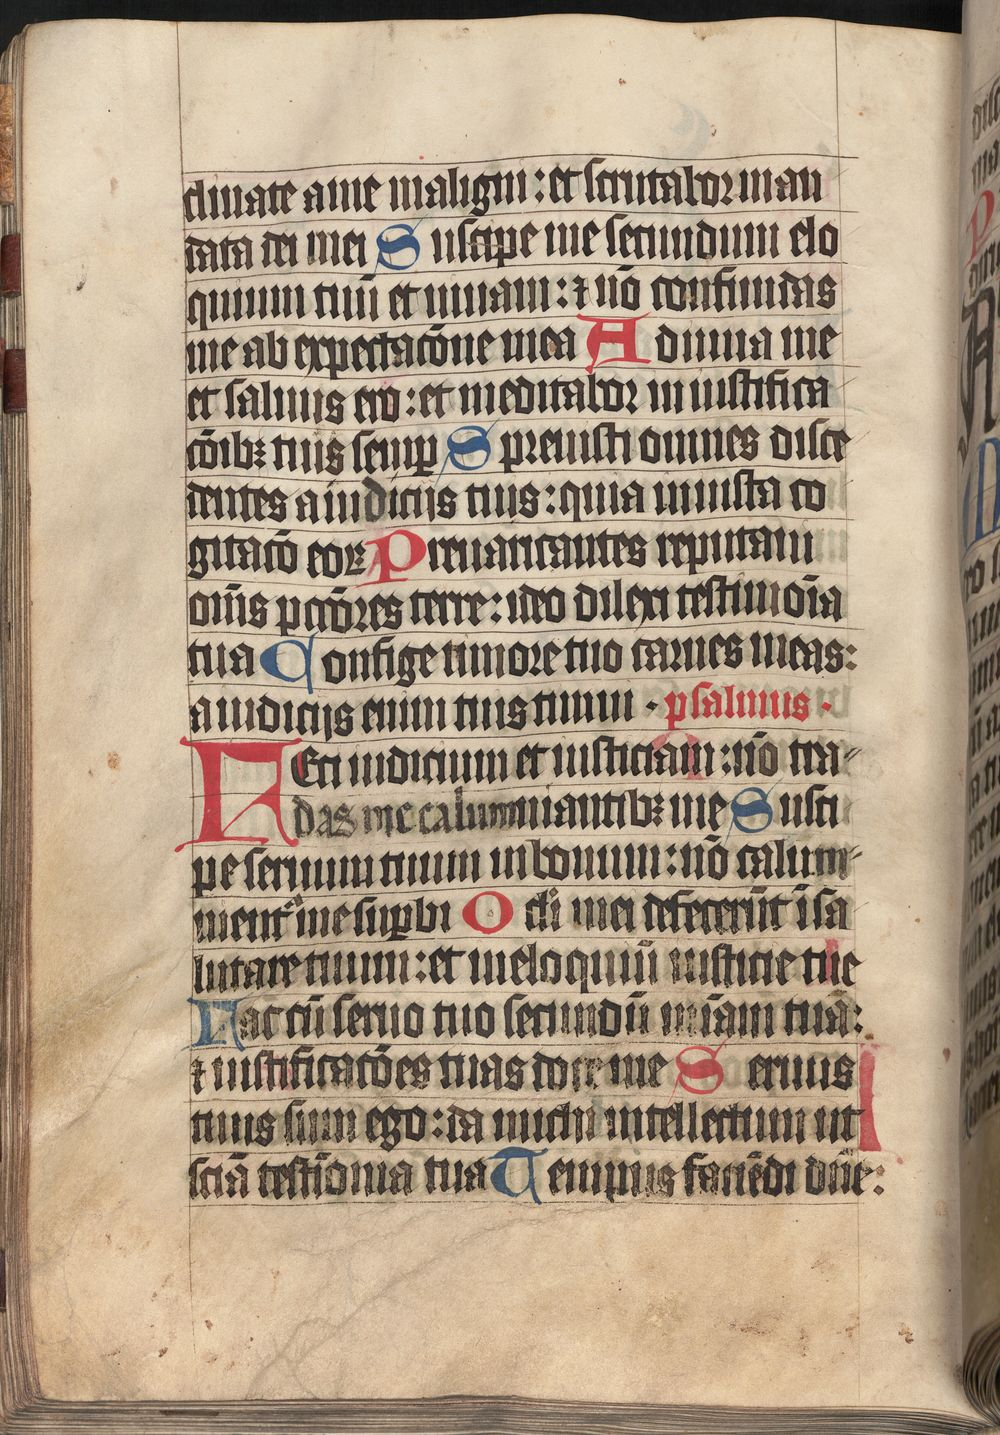 clinate a me maligni : et scrutabor man
data dei mei Suscipe me secundum elo
quium tuū et viuam : ⁊ nō confundas
me ab expectacōne mea Adiuua me
et saluus ero : et meditabor in iustifica
cōibꝫ tuis semꝑ Spreuisti omnes disce
dentes a iudicijs tuis : quia iniusta co
gitacō eoꝝ Preuaricantes reputaui
om̄s pccōres terre : ideo dilexi testimōia
tua Confige timore tuo carnes meas :
a iudicijs enim tuis timui · psalmus ·
Feci iudicium et iusticiam : nō tra-
das me calumniantibꝫ me Susci
pe seruum tuum in bonum : nō calum-
nientᷣ me suꝑbi Oculi mei defecerūt ī sa
lutare tuum : et in eloquiū iusticie tue
Fac cū seruo tuo secundū mīam tuā :
⁊ iustificacōes tuas doce me Seruus
tuus sum ego : da michi intellectum ut
sciā testīonia tua Tempus faciēdi dn̄e :